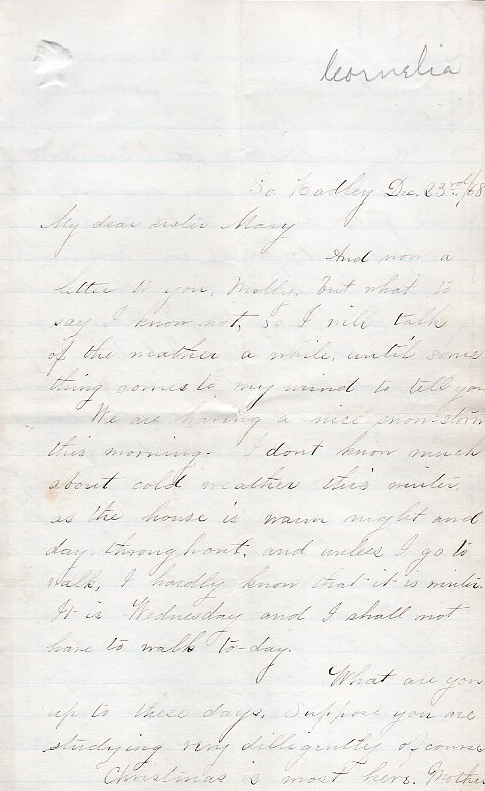 Cornelia
So. Hadley Dec. 23rd/68
My dear sister Mary
And now a
letter to you, Molly, but what to
say I know not, so I will talk
of the weather a while, until some
thing comes to my mind to tell you
We are having a nice snow-storm
this morning. I dont know much
about cold weather this winter,
as the house is warm night and
day, throughout, and unless I go to
walk, I hardly know that it is winter.
It is Wednesday and I shall not
have to walk to-day.
What are you
up to these days. Suppose you are
studying very dilligently of course
Christmas is most here. Mother